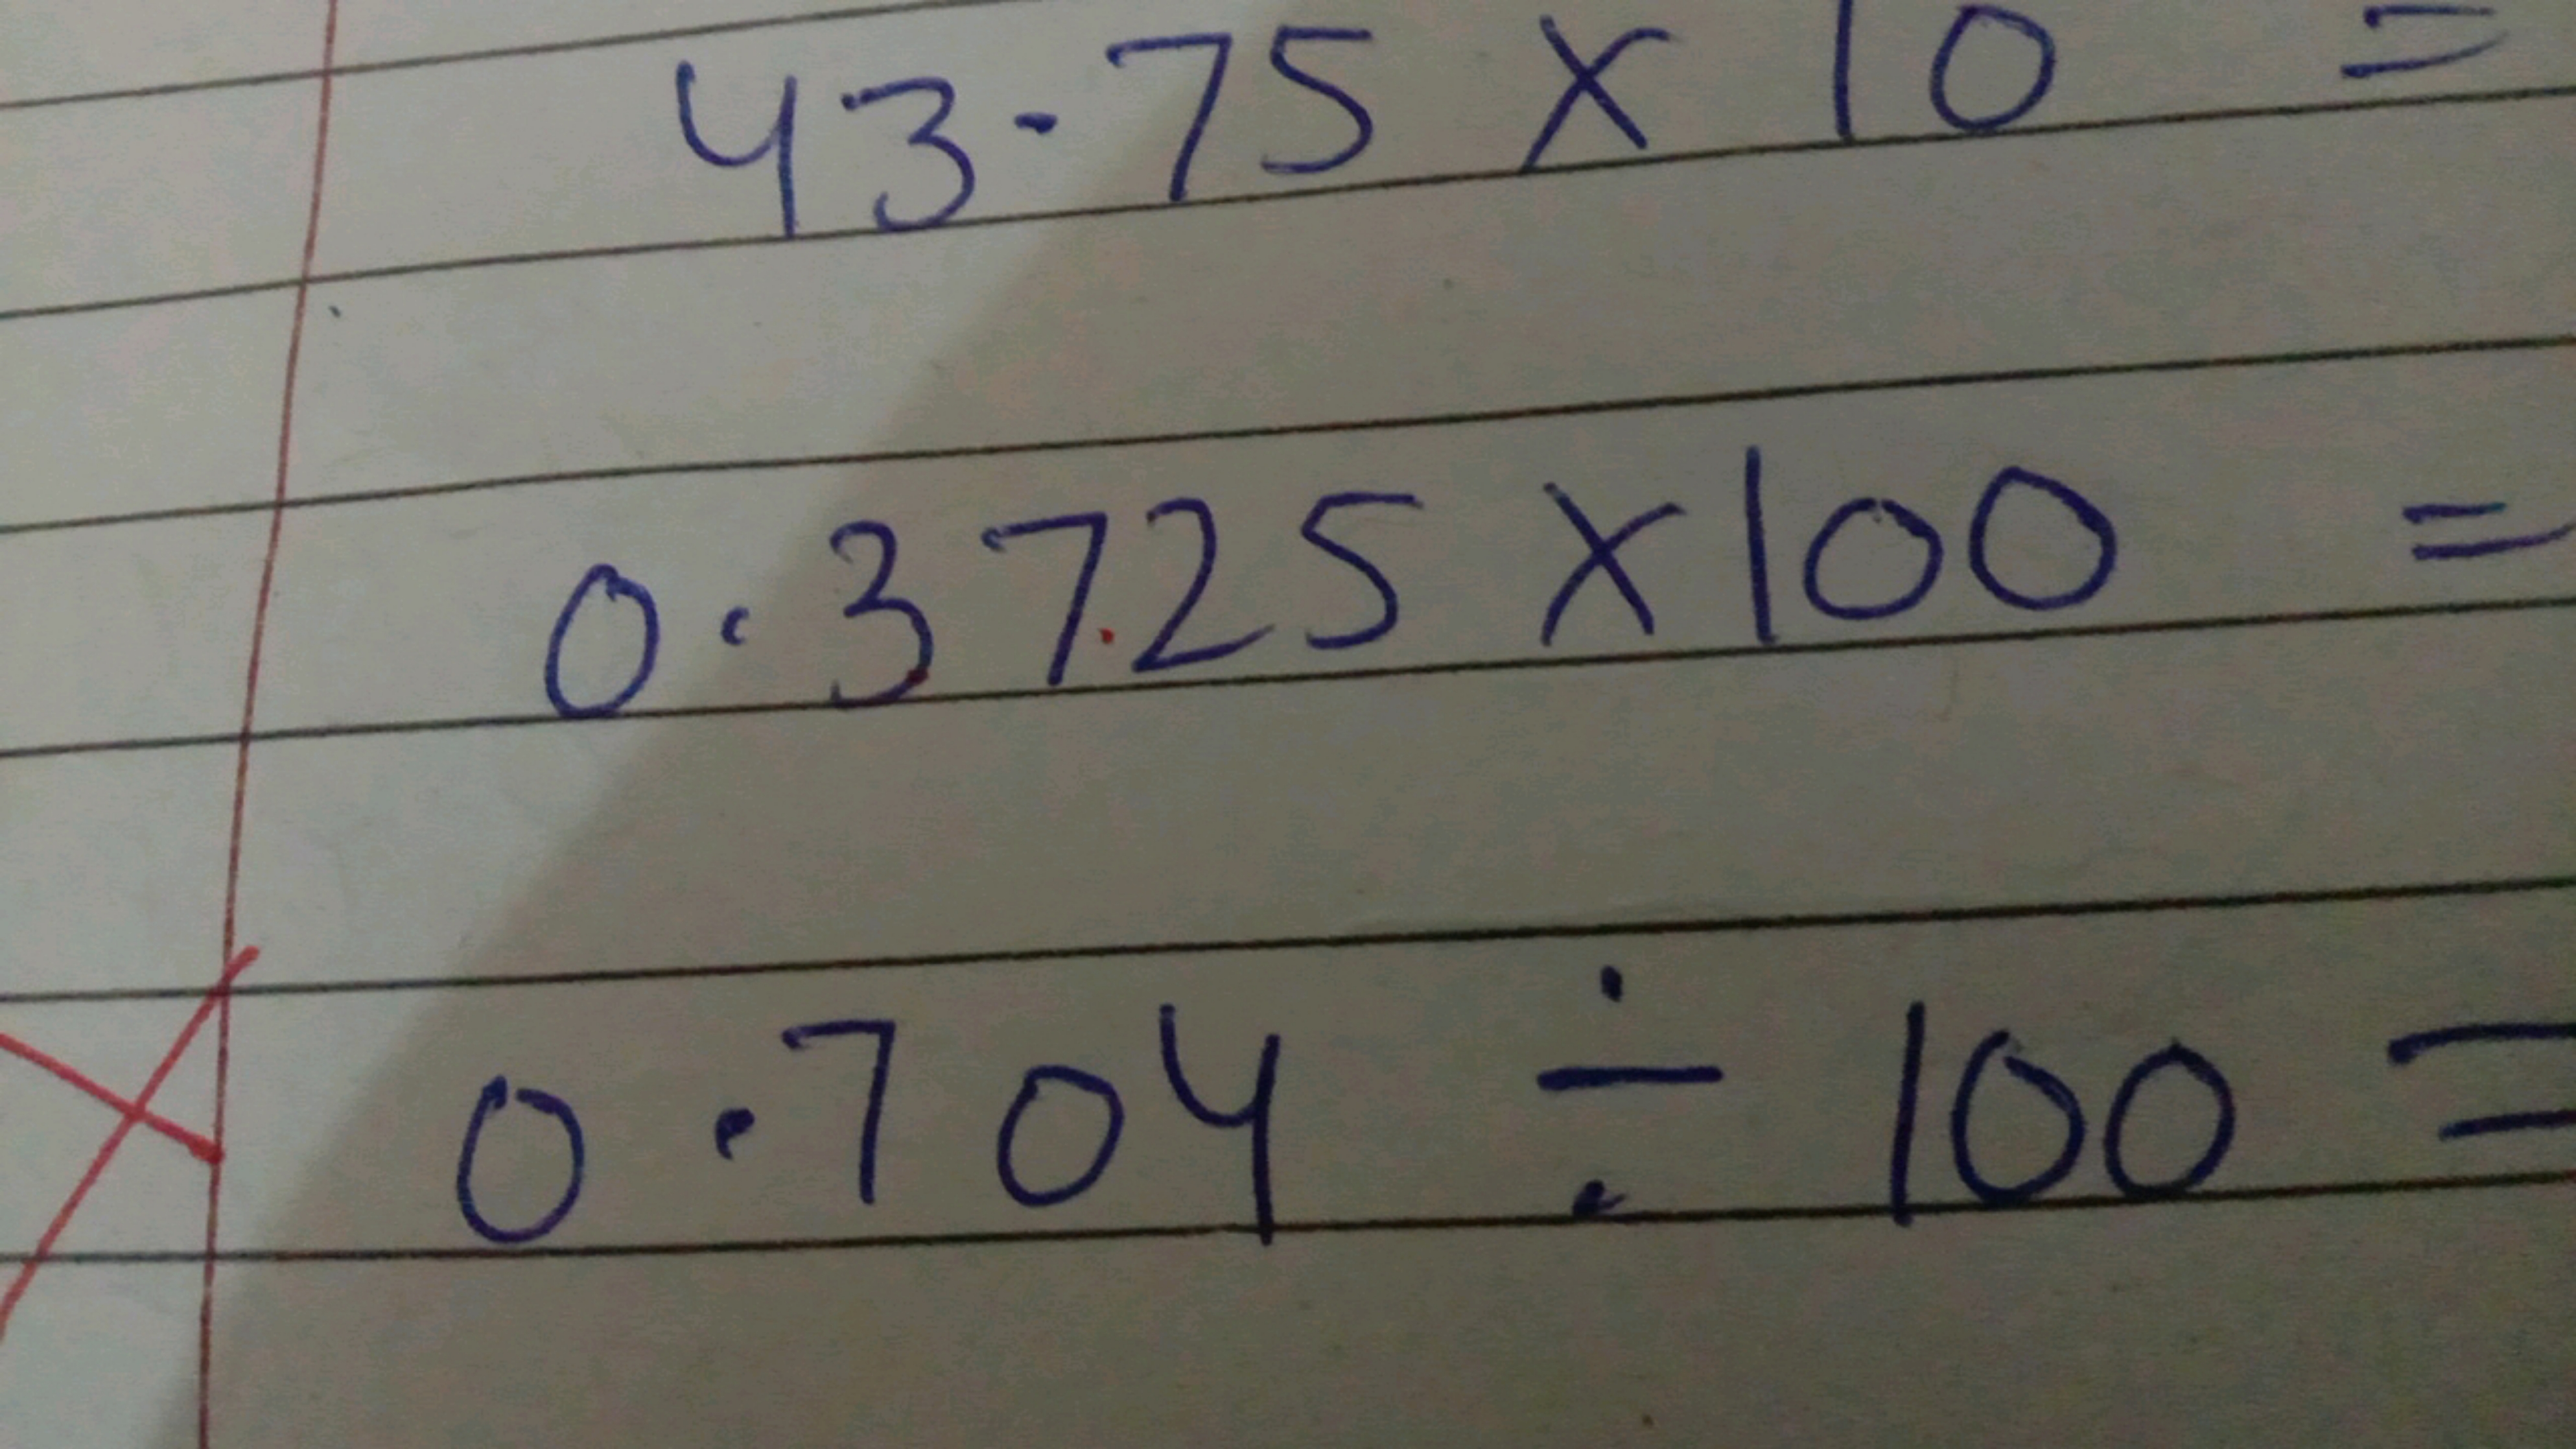 43.75 x 10 =
0.3725 x 100 =
0.704 ÷ 100 =